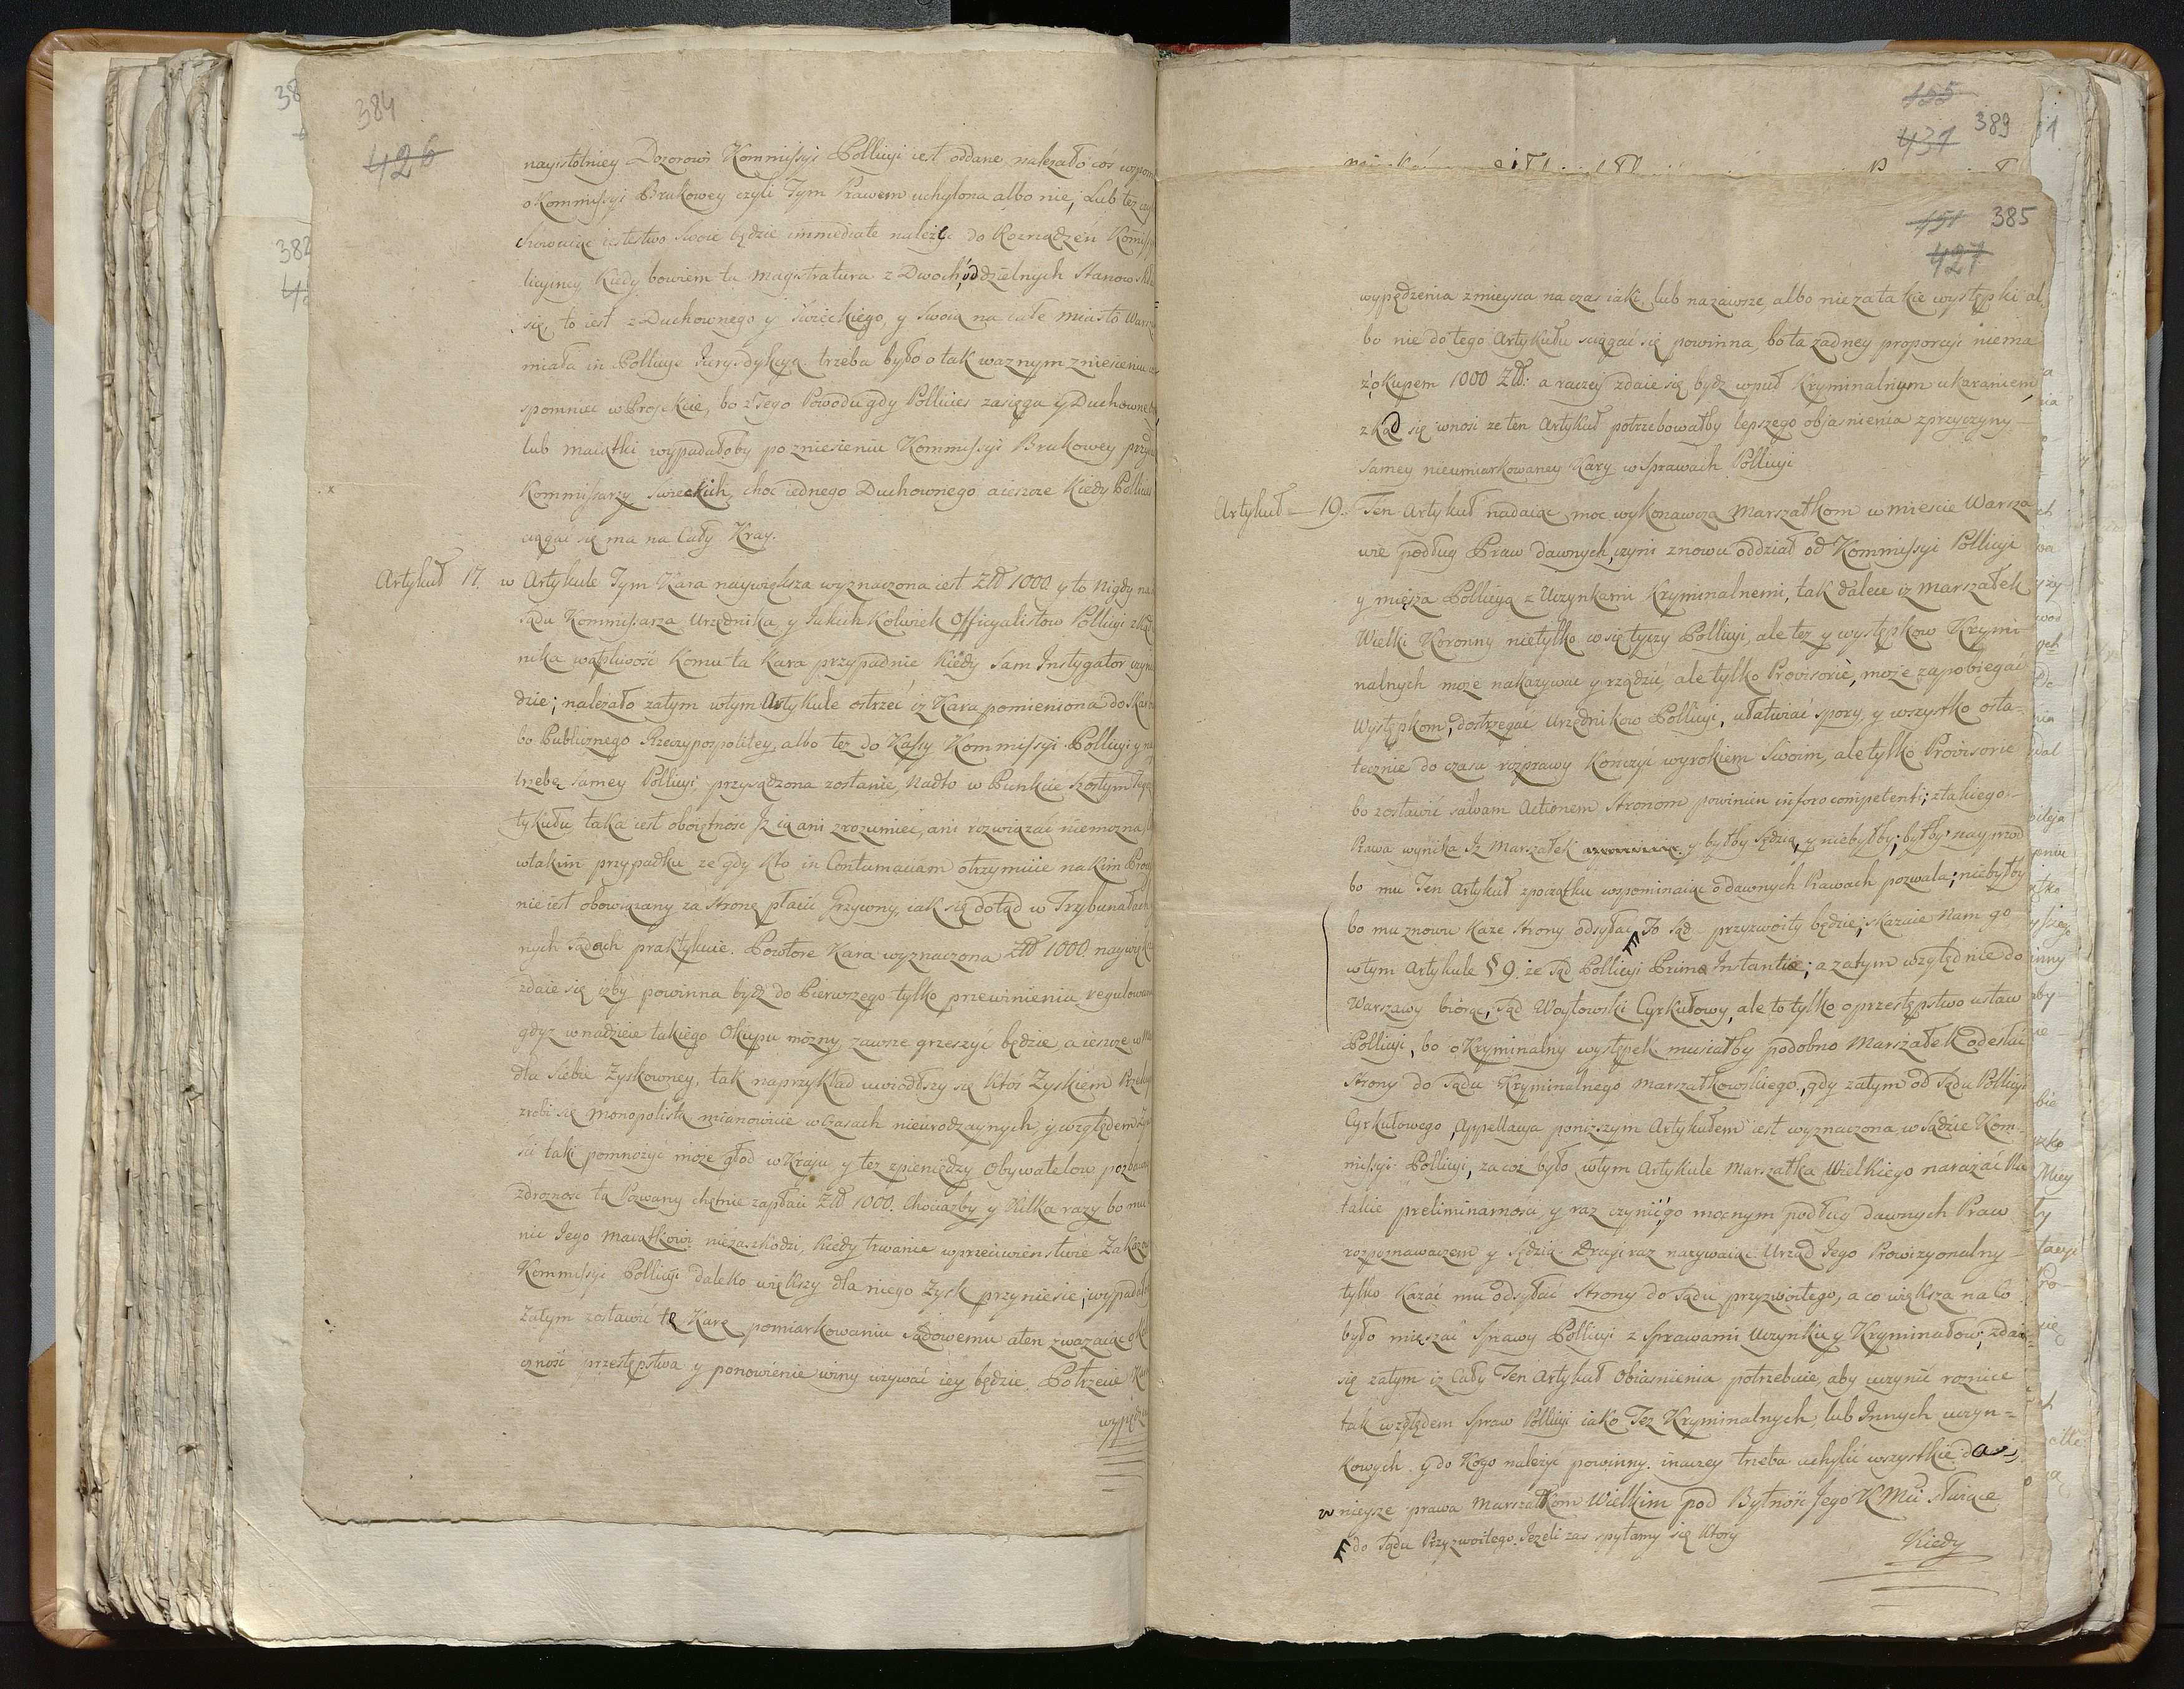 384
426
nayistotniey Dozorowi Kommissyi Pollicyi iest oddane, należało coś wspom
o Kommissyi Brukowey czyli Tym Prawem uchylona albo nie, Lub też
chowaiąc iestestwo swoie będzie immediate należeć do Rozrządzeń Kommissyi
licyiney Kiedy bowiem ta Magistratura z Dwoch oddzielnych Stanow
się, to iest z Duchownego y Swieckiego, y Swoią na całe miasto Warsz
miała in Pollicye Jurysdykcyą. trzeba było o tak ważnym zniesieniu
spomniec w Projekcie, bo z Tego Powodu gdy Pollicies zasięga y Duchowne
lub maiątki wypadałoby po zniesieniu Kommissyi Brukowey
Kommissarzy swieckich, choc iednego Duchownego aieszcze Kiedy Pollicies
ciągać się ma na Cały Kray.
Artykuł 17. w Artykule Tym Kara naywiększa wyznaczona iest Złł 1000 y to Nigdy na
Sądu Kommissarza Urzędnika, y Jakich Kolwiek Officyalistow Pollicyi
nika wątpliwość Komu ta Kara przypadnie, Kiedy Sam Instygator
dzie; należało zatym wtym Artykule ostrzec iz Kara pomieniona do Skar
bo Publicznego Rzeczypospolitey, albo tez do Kassy Kommissyi Pollicyi y na
trzebę samey Pollicyi przysądzona zostanie, Nadto w Punkcie szostym Tego
tykułu taka iest oboiętność Iz ią ani zrozumieć, ani rozwiązać niemożna,
wtakim przypadku ze gdy kto in Contumaciam otrzymuie na kim
nie iest obowiązany za Stronę płacić Grzywny, iak się dotąd w Trybunałach
nych Sądach praktykuie. Powtore Kara wyznaczona Złł 1000. naywięk
zdaie się iżby powinna bydź do Pierwszego tylko przewinienia regulowana
gdyz w nadzieie takiego Okupu możny zawsze grzeszyć będzie, a ieszcze w
dla siebie Zyskowney, tak naprzykład uwiodłszy się ktoś Zyskiem
zrobi się Monopolistą mianowicie w Czasach nieurodzaynych, y względem
ści taki pomnożyć może głod w Kraju, y tez z pieniędzy Obywatelow
zdrożność tę Pozwany chętnie zapłaci Złł 1000. Chociażby y Kilka razy bo mu
nic Jego Maiątkowi niezaszkodzi, Kiedy trwanie w przeciwienstwie
Kommissyi Pollicyi daleko większy dla niego Zysk przyniesie; wypada
Zatym zostawić tę Karę pomiarkowaniu Sądowemu aten zwazaiąc
czność przestępstwa y ponowienie winy używać iey będzie. Potrzecie
wypędze
155
431 389
151 385
427
wypędzenia zmieysca na czas iaki, lub nazawsze, albo nieza takie występki al
bo nie do tego Artykułu sciągać się powinna, bo ta zadney proporcyi niema
z okupem 1000 Złł: a raczey zdaie się bydz wpuł Kryminalnym ukaraniem,
zkąd się wnosi ze ten Artykuł potrzebowałby lepszego objasnienia z przyczyny
samey nieumiarkowaney Kary w Sprawach Pollicyi
Artykuł — 19. Ten Artykuł nadaiąc moc wykonawczą Marszałkom w miescie Warsza
wie podług Praw dawnych, czyni znowu oddział od Kommissyi Pollicyi
y miesza Pollicyą z Uczynkami Kryminalnemi, tak dalece iz Marszałek
Wielki Koronny nietylko co się tyczy Pollicyi, ale też y występkow Krymi
nalnych może nakazywać y rządzić, ale tylko Provisorie, może zapobiegać
Występkom, dostrzegać Urzędnikow Pollicyi, ułatwiać spory, y wszystko osta-
tecznie do czasu rozprawy kończyć wyrokiem Swoim, ale tylko Provisorie
bo zostawić salvam Actionem Stronom powinien in foro competenti; z takiego
Prawa wynika Iz Marszałek y byłby sędzią, y niebyłby; byłby nayprzod
bo mu Ten Artykuł z początku wspominaiąc o dawnych Prawach pozwala; niebyłby
bo mu znowu kaze Strony odsyłać, To Sąd przyzwoity będzie; skazaie Nam go
wtym Artykule § 9. że Sąd Pollicyi Prima Instantia; a zatym względnie do
Warszawy biorąc, Sąd Woytowski Cyrkułowy, ale to tylko o przestępstwo ustaw
Pollicyi, bo o Kryminalny występek musiałby podobno Marszałek odesłać
Strony do Sądu Kryminalnego Marszałkowskiego, gdy zatym od Sądu Pollicyi
Cyrkułowego Appellacya poniższym Artykułem iest wyznaczona w Sądzie Kom-
missyi Pollicyi, za coz było wtym Artykule Marszałka Wielkiego narażać na
takie preliminarności, y raz czynić go mocnym podług dawnych Praw
rozpoznawaczem y Sędzią. Drugi raz nazywaiąc Urząd Jego Prowizyonalny
tylko Kazać mu odsyłać Strony do Sądu przyzwoitego, a co większa na co
było mieszać Sprawy Pollicyi z Sprawami Uczynku y Kryminałow; zdaie
się zatym iz Cały Ten Artykuł Obiasnienia potrzebuie, aby uczynić roznice
tak względem Spraw Pollicyi iako Tez Kryminalnych, lub Innych uczyn=
kowych. y do Kogo należyć powinny. inaczey trzeba uchylić wszystkie da
wnieysze prawa Marszałkom Wielkim pod Bytność Jego K Mci służące
do Sądu Przyzwoitego. Jeżeli zas spytamy się Ktory
Kiedy